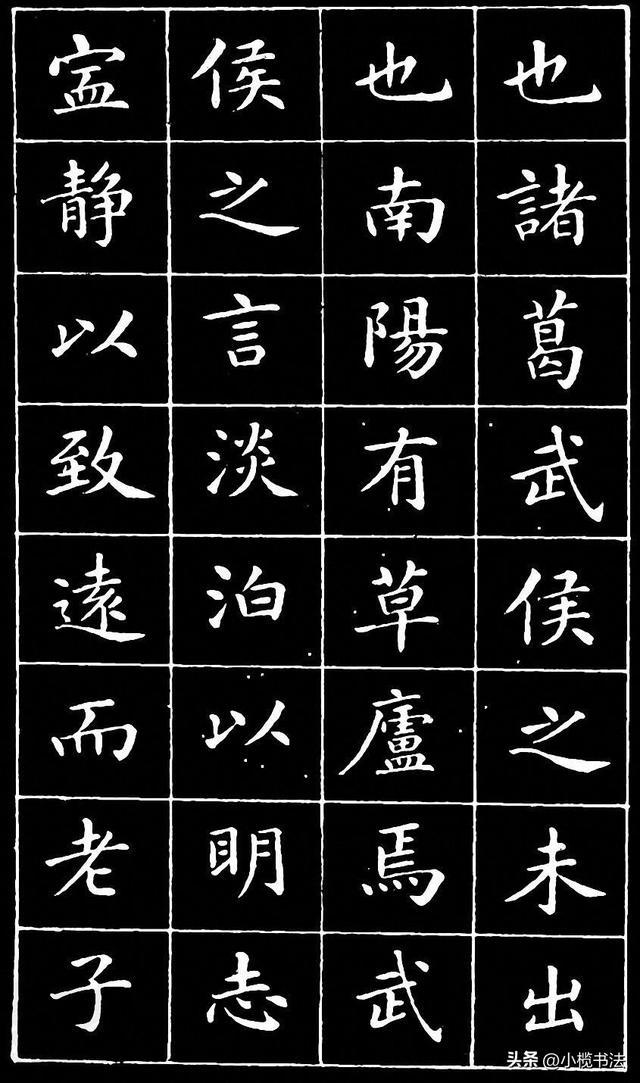 也諸葛武侯之未出
也南陽有草廬焉武
侯之言淡泊以明志
寍静以致遠而老子
头条 @小榄书法